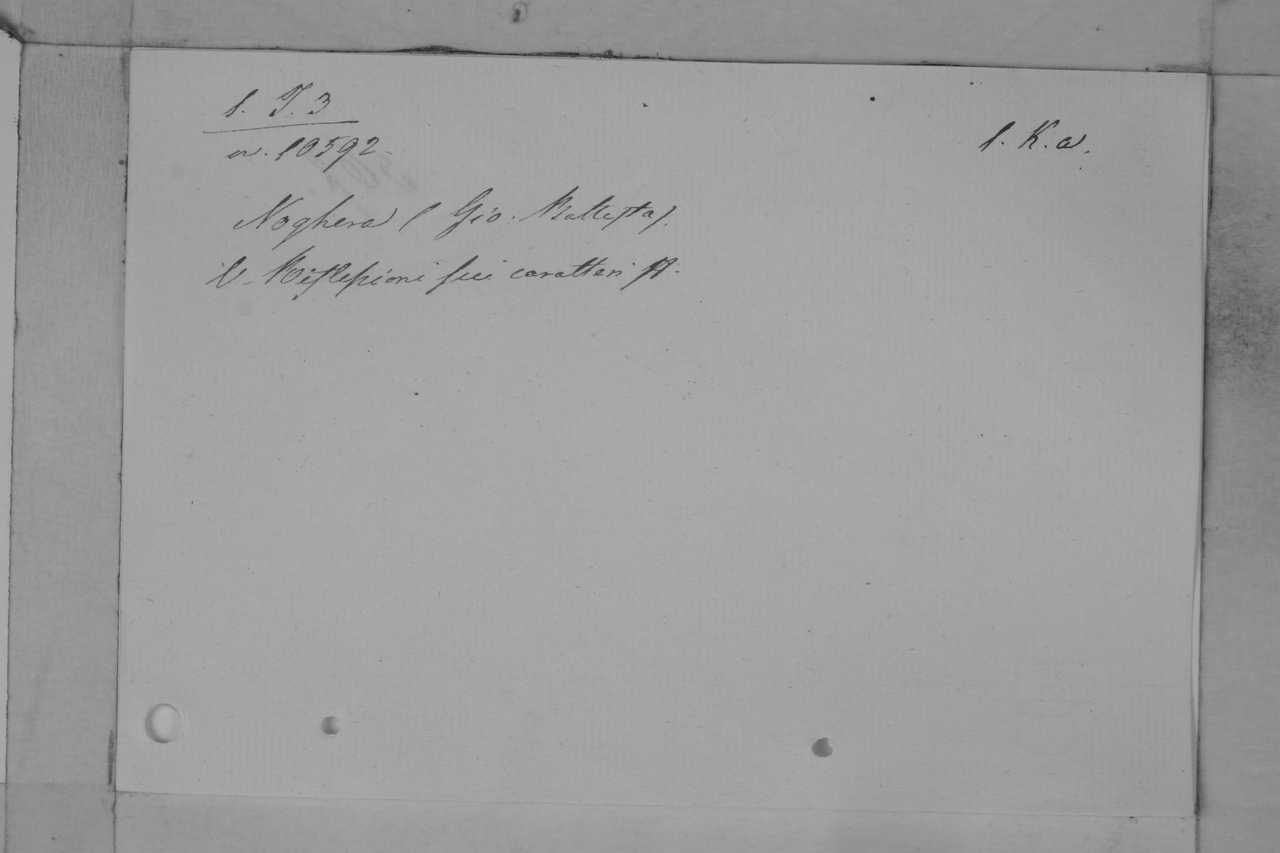 l. T. 3
n. 10592
l. K. a.
Noghera (Gio. Battista).
V. Riflessioni sui caratteri